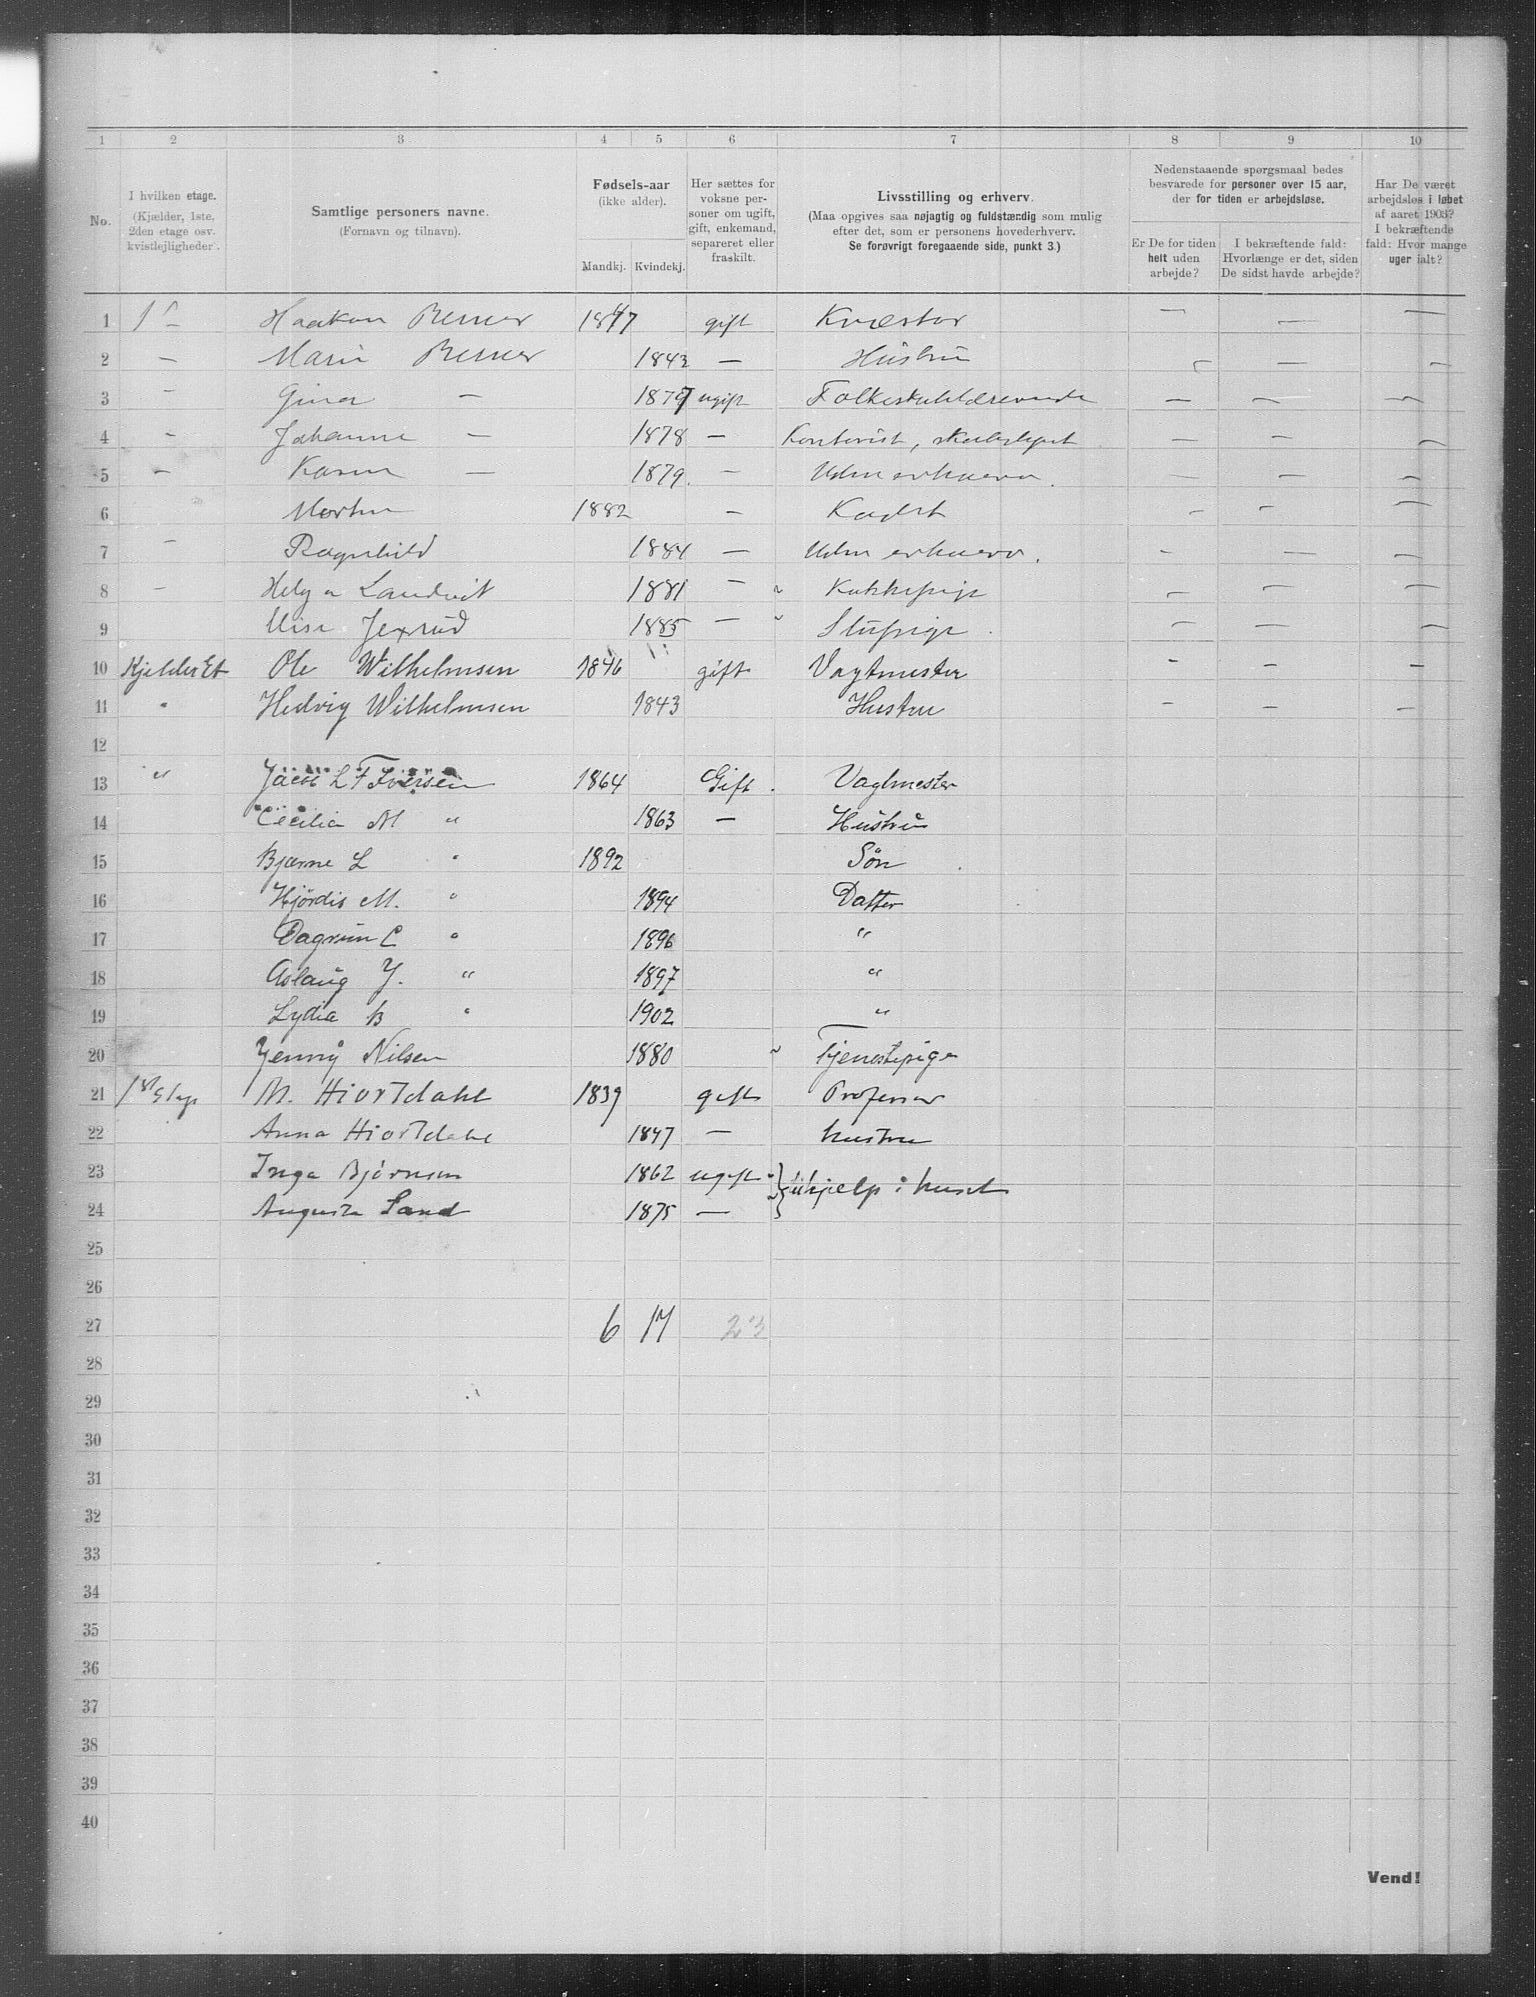 1 2 3 4 5 6 7 8 9 10
No.
I hvilken etage.
(Kjælder, 1ste,
2den etage osv.
kvistlejligheder.
Samtlige personers navne.
(Fornavn og tilnavn).
Fødsels-aar
(ikke alder).
Mandkj. Kvindekj.
Her sættes for
voksne per-
soner om ugift,
gift, enkemand,
separeret eller
fraskilt.
Livsstilling og erhverv.
(Maa opgives saa nøjagtig og fuldstændig som mulig
efter det, som er personens hovederhverv.
Se forøvrigt foregaaende side, punkt 3.)
Nedenstaaende spørgsmaal bedes
besvarede for personer over 15 aar,
der for tiden er arbejdsløse.
Er De for tiden
helt uden
arbejde?
I bekræftende fald:
Hvorlænge er det, siden
De sidst havde arbejde?
Har De været
arbejdsløs i løbet
af aaret 1903?
I bekræftende
fald: Hvor mange
uger ialt?
1 Haakon Berner 1847 gift Kvæstor — — —
2 — Marie Berner 1843 — Hustru — — —
3 — Gina — 1877 ugift Folkeskolelærerinde — — —
4 — Johanne — 1878 — Kontorist, — — —
5 — Karen — 1879. — Uden erhverv. — — —
6 Morten 1882 — Kadet — — —
7 — Ragnhild 1884 — Uden erhverv. — — —
8 — Helga Landvit 1881 — Kokkepige — — —
9 Jexrud 1885 — Stuepige. — — —
10 Kjelder Et Ole Wilhelmsen 1846 gift Vagtmester — — —
11 " Hedvig Wilhelmsen 1843 Hustru — — —
12
13 " Jacob L F Iversen 1864 Gift. Vagtmester
14 Cecilia M " 1863 — Hustru
15 Bjarne L " 1892 Søn
16 Hjördis M. " 1894 Datter
17 Dagrun C " 1896 "
18 Aslaug J. " 1897 "
19 Lydia B " 1902 "
20 Jenny Nilsen 1880 Tjenestepige
21 1ste Etage M. Hiortdahl 1839 gift Professor
22 Anna Hiortdahl 1847 — hustru
23 Inga Björnsen 1862 ugift } hjelp i huset
24 Augusta Sand 1875 —
25
26
27 6 17 23
28
29
30
31
32
33
34
35
36
37
38
39
40
Vend!